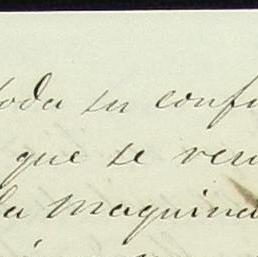 toda su confi
que se resu
la maquina